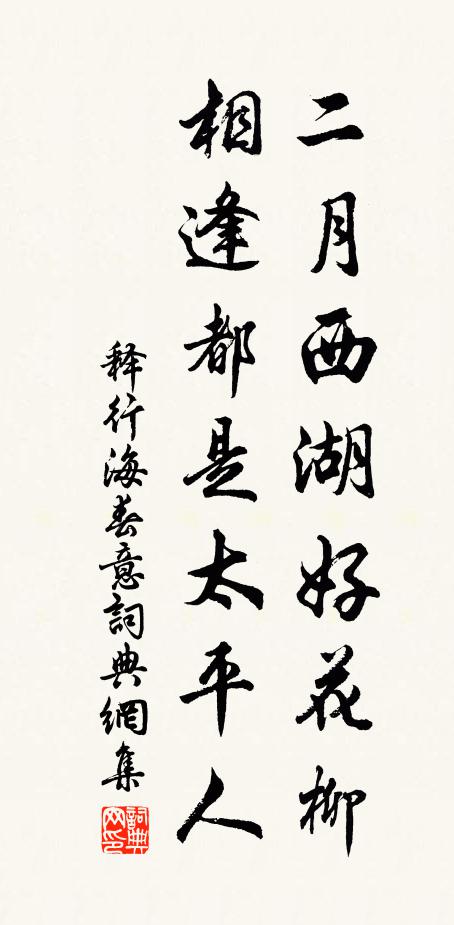 二月西湖好花柳
相逢都是太平人
释行海春意詞典網集
詞典网印